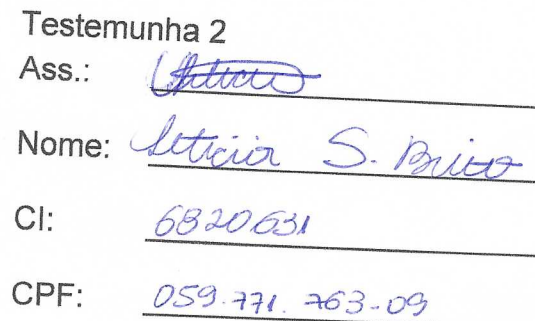 Testemunha 2
Ass.: Letícia
Nome: Letícia S. Brito
CI: 6820631
CPF: 059.771.763-09